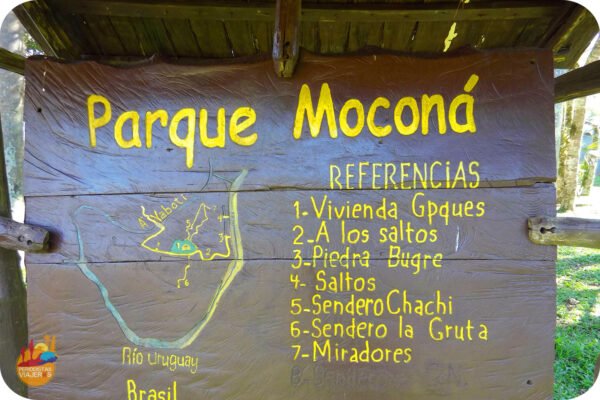 Parque Moconá
REFERENCIAS
1-Vivienda Gpques
2-A los saltos
3-Piedra Bugre
4- Saltos
5-Sendero Chachi
6-Sendero la Gruta
7-Miradores
A° Yabotí
1
2
3
4
5
6
7
Río Uruguay
Brasil
PERIODISTAS
VIAJEROS